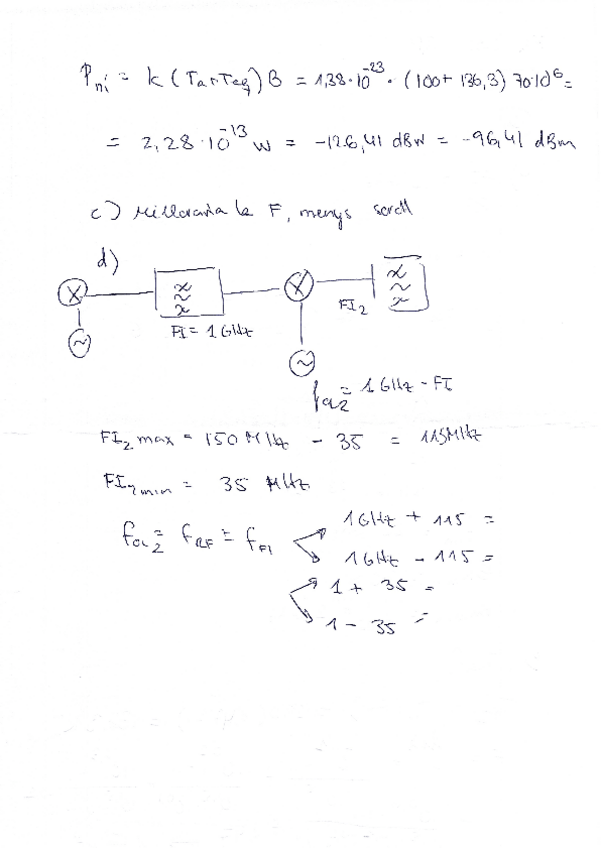 Pni = k (Ta+Teq) B = 1,38·10^-23 · (100+136,3) 70·10^6 =
= 2,28·10^-13 W = -126,41 dBW = -96,41 dBm
c) Milloraria la F, menys soroll
d)
FI = 1 GHz
FI2
fOL2 = 1 GHz - FI
FI2 max = 150 MHz - 35 = 115MHz
FI2 min = 35 MHz
fOL2 = fRF ± fFI
1 GHz + 115 =
1 GHz - 115 =
1 + 35 =
1 - 35 =